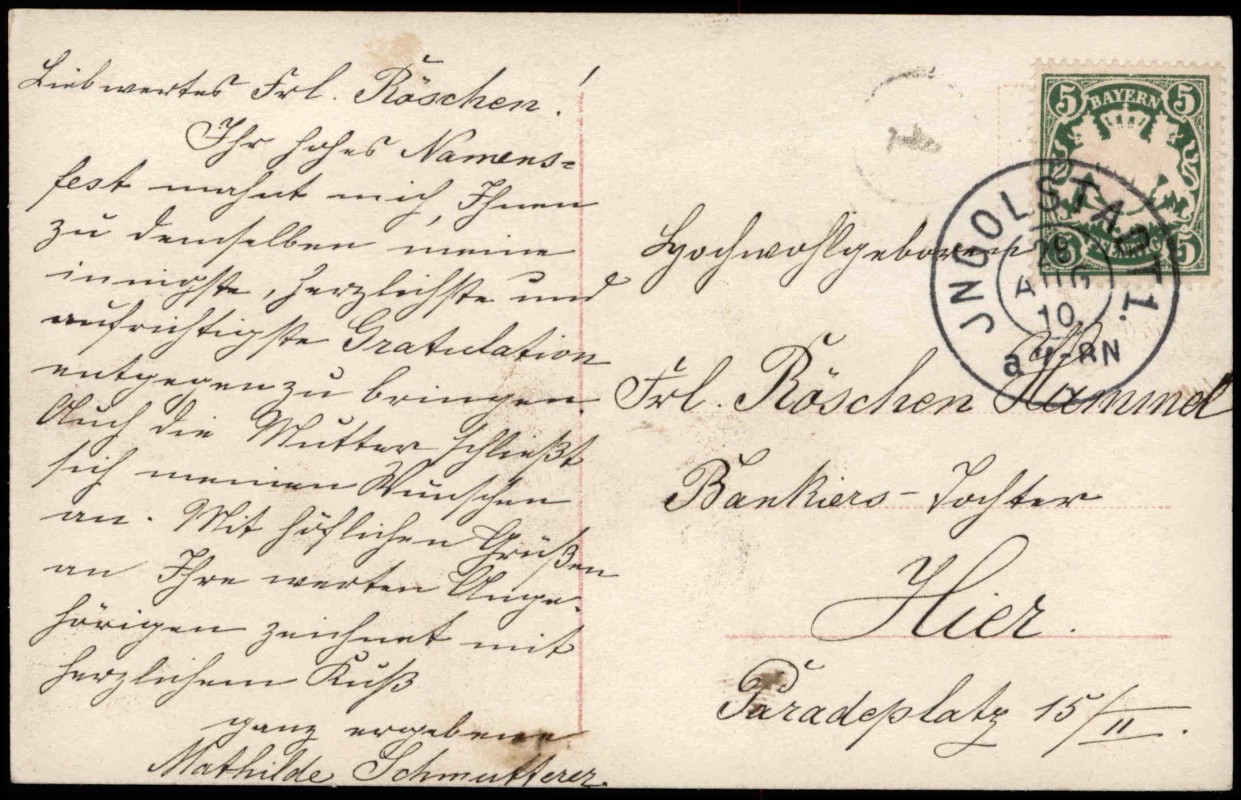 Liebwertes Frl. Röschen!
Ihr hohes Namens=
fest mahnt mich, Ihnen
zu demselben meine
innigste, herzlichste und
aufrichtigste Gratulation
entgegen zu bringen.
Auch die Mutter schließt
sich meinen Wünschen
an. Mit höflichen Grüßen
an Ihre werten Ange-
hörigen zeichnet mit
herzlichem Kuß
ganz ergebene
Mathilde Schmutterer.
5 BAYERN 5
5 PFENNIG 5
JNGOLSTADT 1.
28
AUG
10
Hochwohlgeboren
Frl. Röschen Hammel
Bankiers-Tochter
Hier.
Paradeplatz 15/II.